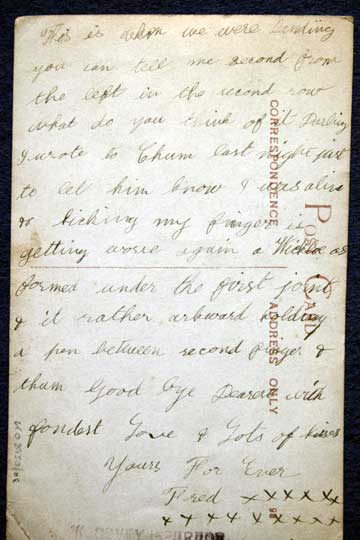 This is when we were Landing
you can tell me second from
the left in the second row
what do you think of it Darling
I wrote to Chum last night just
to let him know I was alive
& kicking my finger is
getting worse again a as
formed under the first joint
& it rather arkward holding
a pen between second finger &
thum Good bye Dearest with
fondest Love & Lots of kisses
Yours For Ever
Fred xxxxxx
xxxxxxxxx
POST CARD
CORRESPONDENCE
ADDRESS ONLY